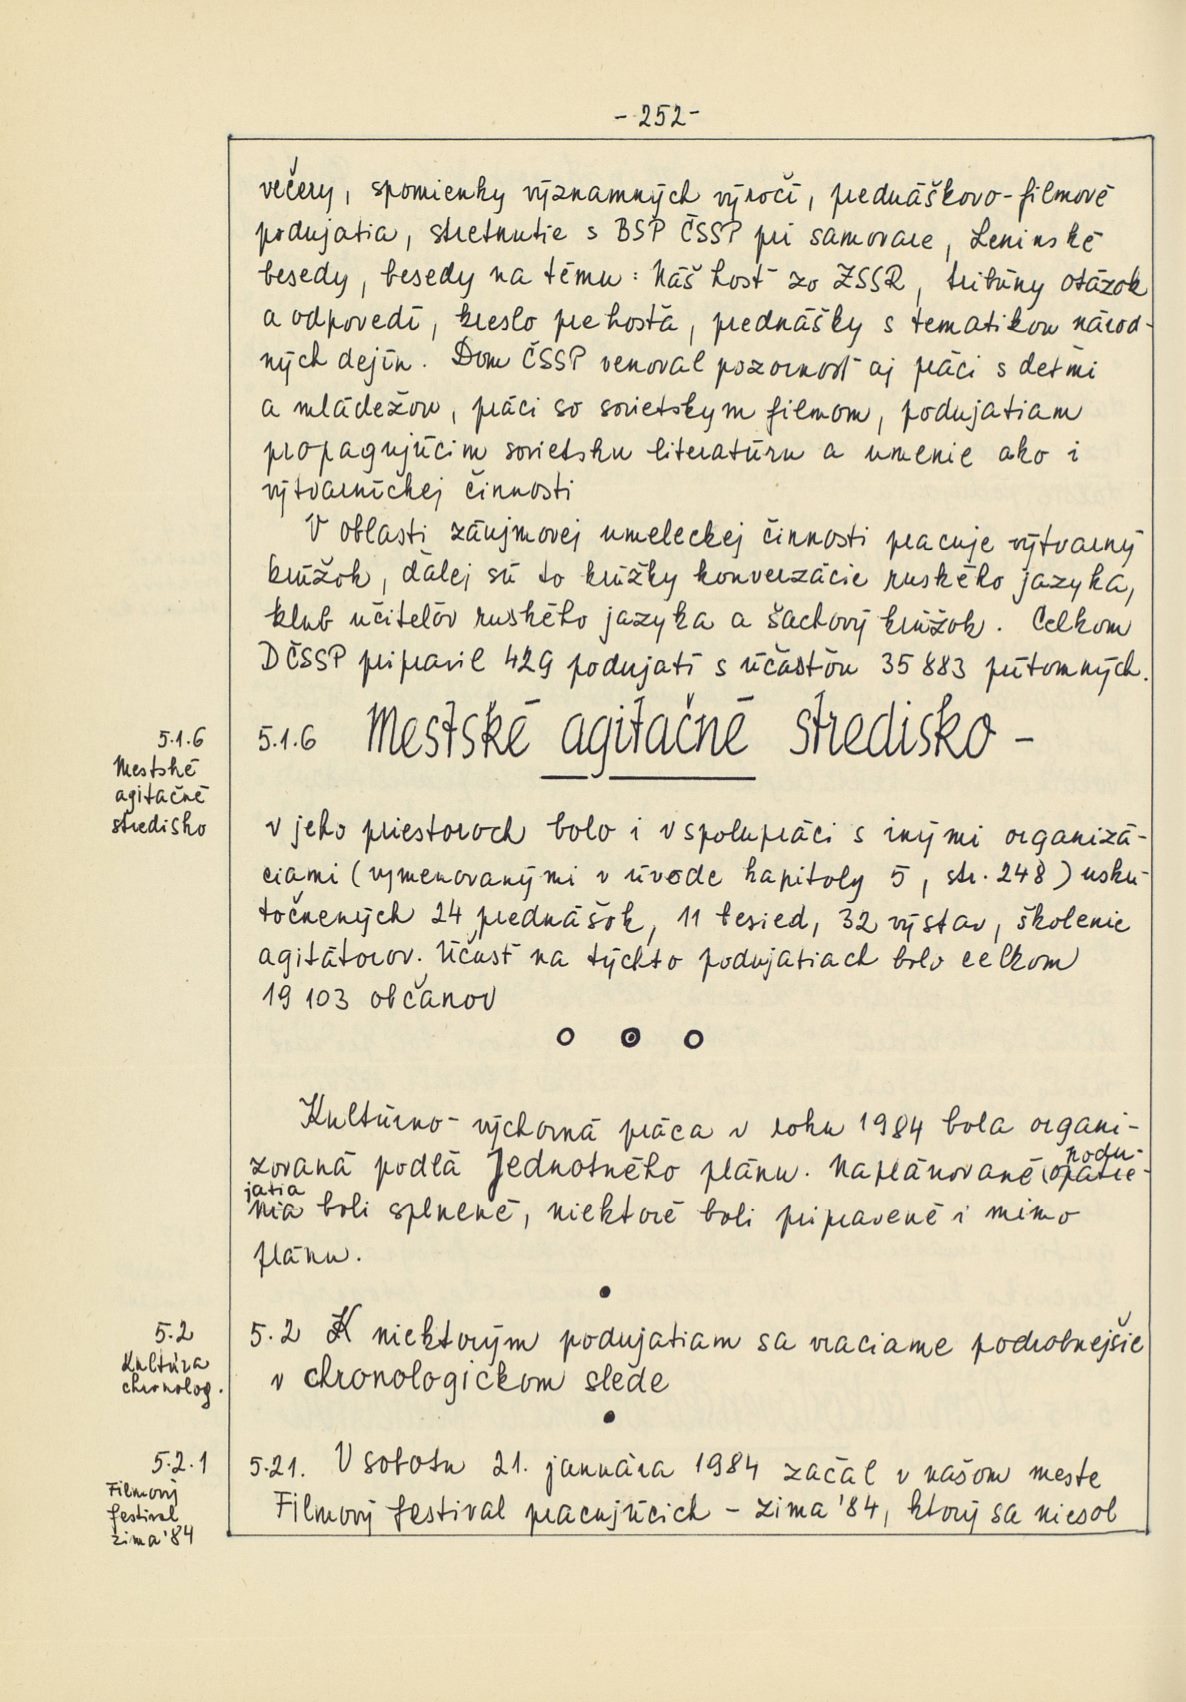 - 252 -
večery, spomienky významných výročí, prednáškovo-filmové
podujatia, stretnutie s BSP ČSSP pri samovare, Leninské
besedy, besedy na tému: Náš hosť zo ZSSR, tribúny otázok
a odpovedí, kreslo pre hosťa, prednášky s tematikou národ-
ných dejín. Dom ČSSP venoval pozornosť aj práci s deťmi
a mládežou, práci so sovietskym filmom, podujatiam
propagujúcim sovietsku literatúru a umenie ako i
výtvarníckej činnosti
V oblasti záujmovej umeleckej činnosti pracuje výtvarný
krúžok, ďalej sú to krúžky konverzácie ruského jazyka,
klub učiteľov ruského jazyka a šachový krúžok. Celkom
DČSSP pripravil 429 podujatí s účasťou 35 883 prítomných.
5.1.6
Mestské
agitačné
stredisko
5.1.6 Mestské agitačné stredisko -
v jeho priestoroch bolo i v spolupráci s inými organizá-
ciami (vymenovanými v úvode kapitoly 5, str. 248) usku-
točnených 24 prednášok, 11 besied, 32 výstav, školenie
agitátorov. Účasť na týchto podujatiach bolo celkom
19 103 občanov
Kultúrno-výchovná práca v roku 1984 bola organi-
zovaná podľa Jednotného plánu. Naplánované opatre-
podu-
jatia
nia boli splnené, niektoré boli pripravené i mimo
plánu.
5.2
Kultúra
chronolog.
5.2 K niektorým podujatiam sa vraciame podrobnejšie
v chronologickom slede
5.2.1
Filmový
festival
zima '84
5.21. V sobotu 21. januára 1984 začal v našom meste
Filmový festival pracujúcich - zima '84, ktorý sa niesol